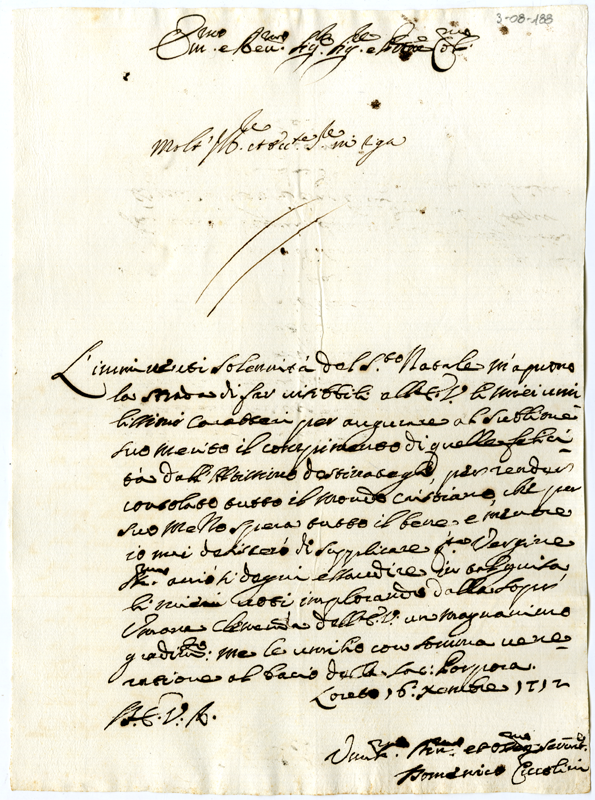 3-08-188
Em.mo e Rev.mo Sig. Sig. e Col.mo
Molt' Ill.re et
L'imminenti solennità del S.to Natale m'aprono
la strada di far visibbili all'E.V. li miei umi
lissimi caratteri per augurare al sublime
suo merito il compimento di quelle felici
tà dall'Altissimo destinategli per render
consolato tutto il mondo Cristiano, che per
suo mezzo spera tutto il bene e mentre
io mai desisterò di supplicare q.ta Vergine
SS.ma acciò si degni essaudire in
li miei voti implorando dalla sopra
umana Clemenza dell'E.V. un magnanimo
gradim.to me le umilio con somma vene
ratione al bacio della Sac: Porpora.
Loreto 16 Xembre 1712
D. E. V. R.
Um.mo et Serv.re
Domenico Ciccolini